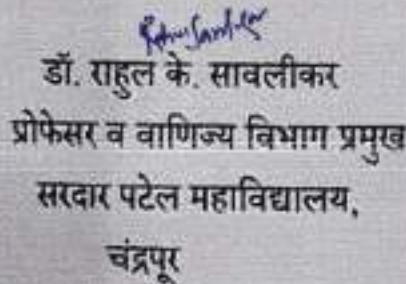 डॉ. राहुल के. सावलीकर
प्रोफेसर व वाणिज्य विभाग प्रमुख
सरदार पटेल महाविद्यालय,
चंद्रपूर